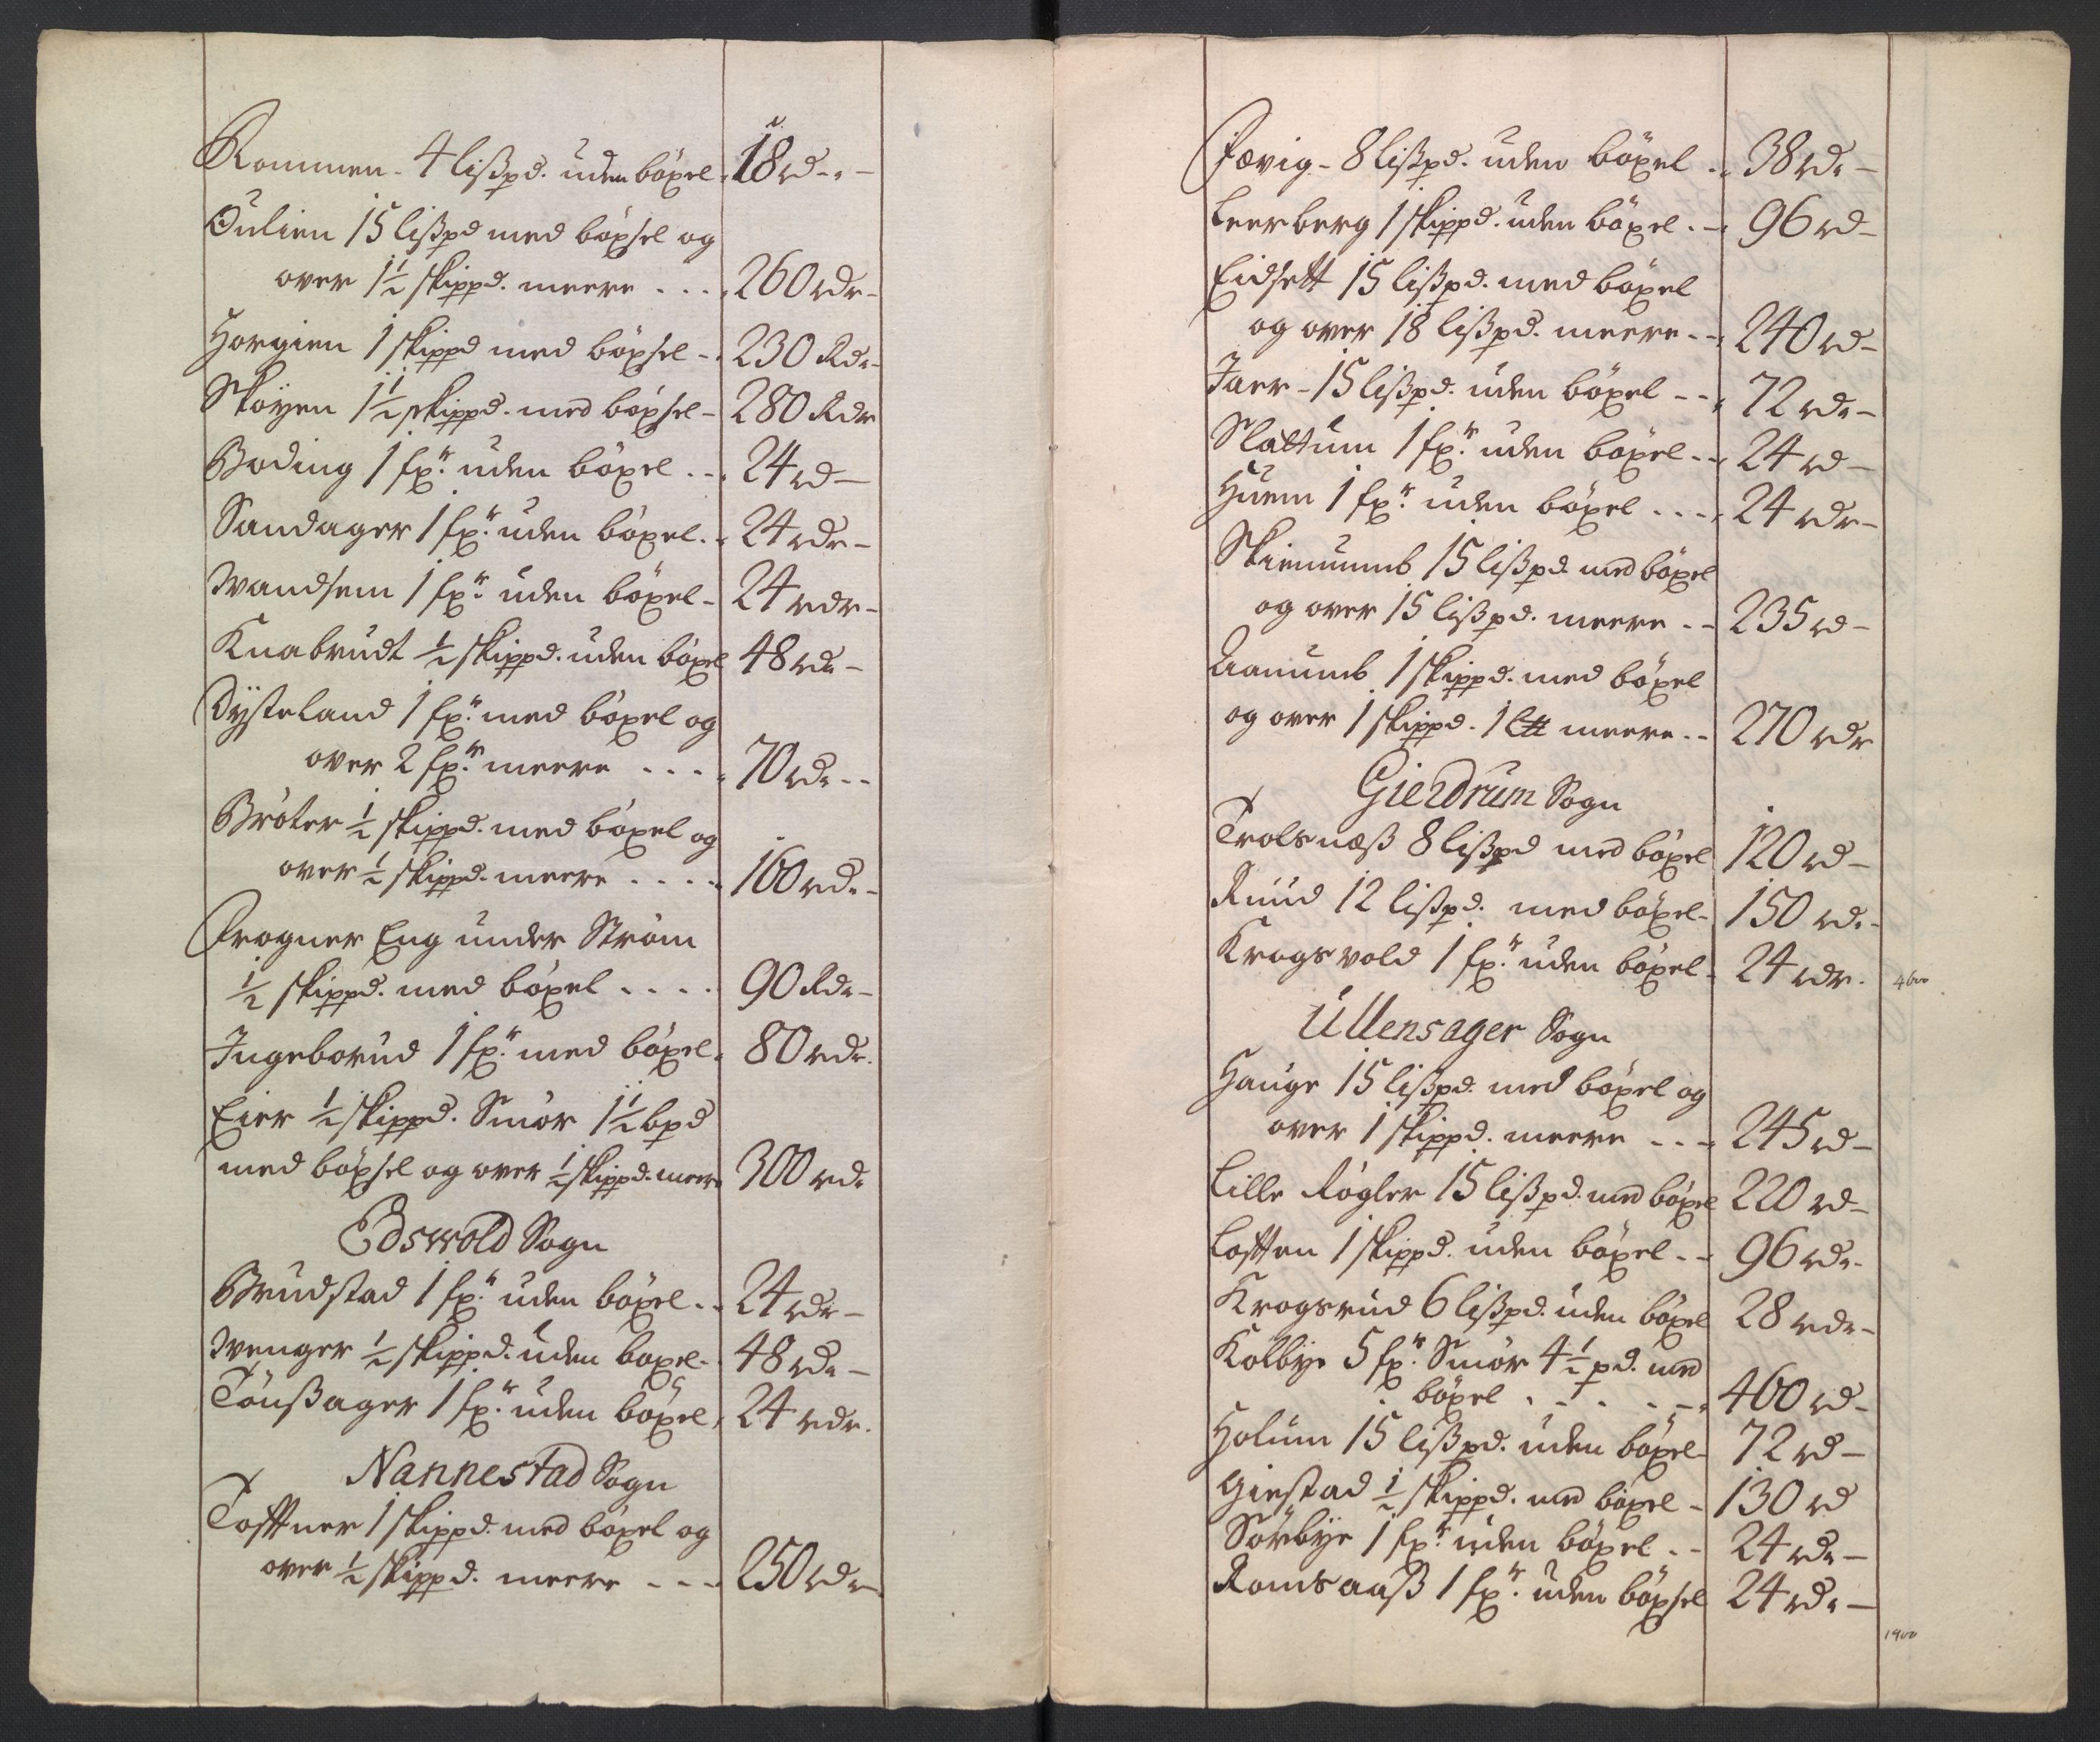 Rommen - 4 lißpd. uden böxel. 18 rd - -
Julien 15 lißpd med böxsel og
over 1½ skippd. meere . . . 260 rdr -
Horgien 1 skippd med böxsel - 230 Rdr -
Skøyen 1½ skippd. med böxsel - 280 Rdr
Boding 1 fxr. uden böxel . . 24 rd -
Sandager 1 fxr. uden böxel . . 24 rdr -
Wandsem 1 fxr. uden böxel - 24 rdr -
Knabrudt ½ skippd. uden böxel 48 rdr -
Dysteland 1 fxr. med böxel og
over 2 fxr. meere . . . . 70 rdr - -
Bröter ½ skippd. med böxel og
over ½ skippd. meere . . . . 160 rdr -
Frogner Eng under Ström
½ skippd. med böxel . . . . 90 Rdr -
Ingeborud 1 fxr. med böxel. 80 rdr.
Eier ½ skippd. Smör 1½ bpd
med böxsel og over ½ skippd. meere 300 rdr
Edswold Sogn
Brudstad 1 fxr. uden böxel . . 24 rdr -
Wenger ½ skippd. uden böxel - 48 rdr -
Tönßager 1 fxr. uden böxel, 24 rdr.
Nannestad Sogn
Tofftner 1 skippd. med böxel og
over ½ skippd. meere - - - 250 rdr
Fævig - 8 lißpd. uden böxel . . 38 rdr -
Leerberg 1 skippd. uden böxel . - 96 rd -
Eidsett 15 lißpd. med böxel
og over 18 lißpd. meere - - 240 rd -
Jaer - 15 lißpd. uden böxel - - 72 rdr -
Slattum 1 fxr. uden böxel - - 24 rd -
Huem 1 fxr. uden böxel . . . - 24 rdr -
Skienumb 15 lißpd. med böxel
og over 15 lißpd. meere - - 235 rd -
Aanumb 1 skippd. med böxel
og over 1 skippd. 1 L℔ meere . . 270 rdr
Gierdrum Sogn
Trolsnæß 8 lißpd med böxel 120 rd -
Ruud 12 lißpd. med böxel - 150 rdr -
Krogsvold 1 fxr. uden böxel - 24 rdr.
Ullensager Sogn
Hauge 15 lißpd. med böxel og
over 1 skippd. meere - - - 245 rd -
Lille Røgler 15 lißpd. med böxel 220 rd -
Loften 1 skippd. uden böxel - - 96 rdr.
Krogsrud 6 lißpd. uden böxel 28 rdr -
Kolbye 5 fxr. Smör 4½ pd. med
böxel . - . . - - 460 rd -
Holum 15 lißpd. uden böxel - 72 rd -
Giestad ½ skippd. med böxel - 130 rd
Sörbye 1 fxr. uden böxel . - 24 rdr -
Romsaaß 1 fxr. uden böxsel 24 rdr -